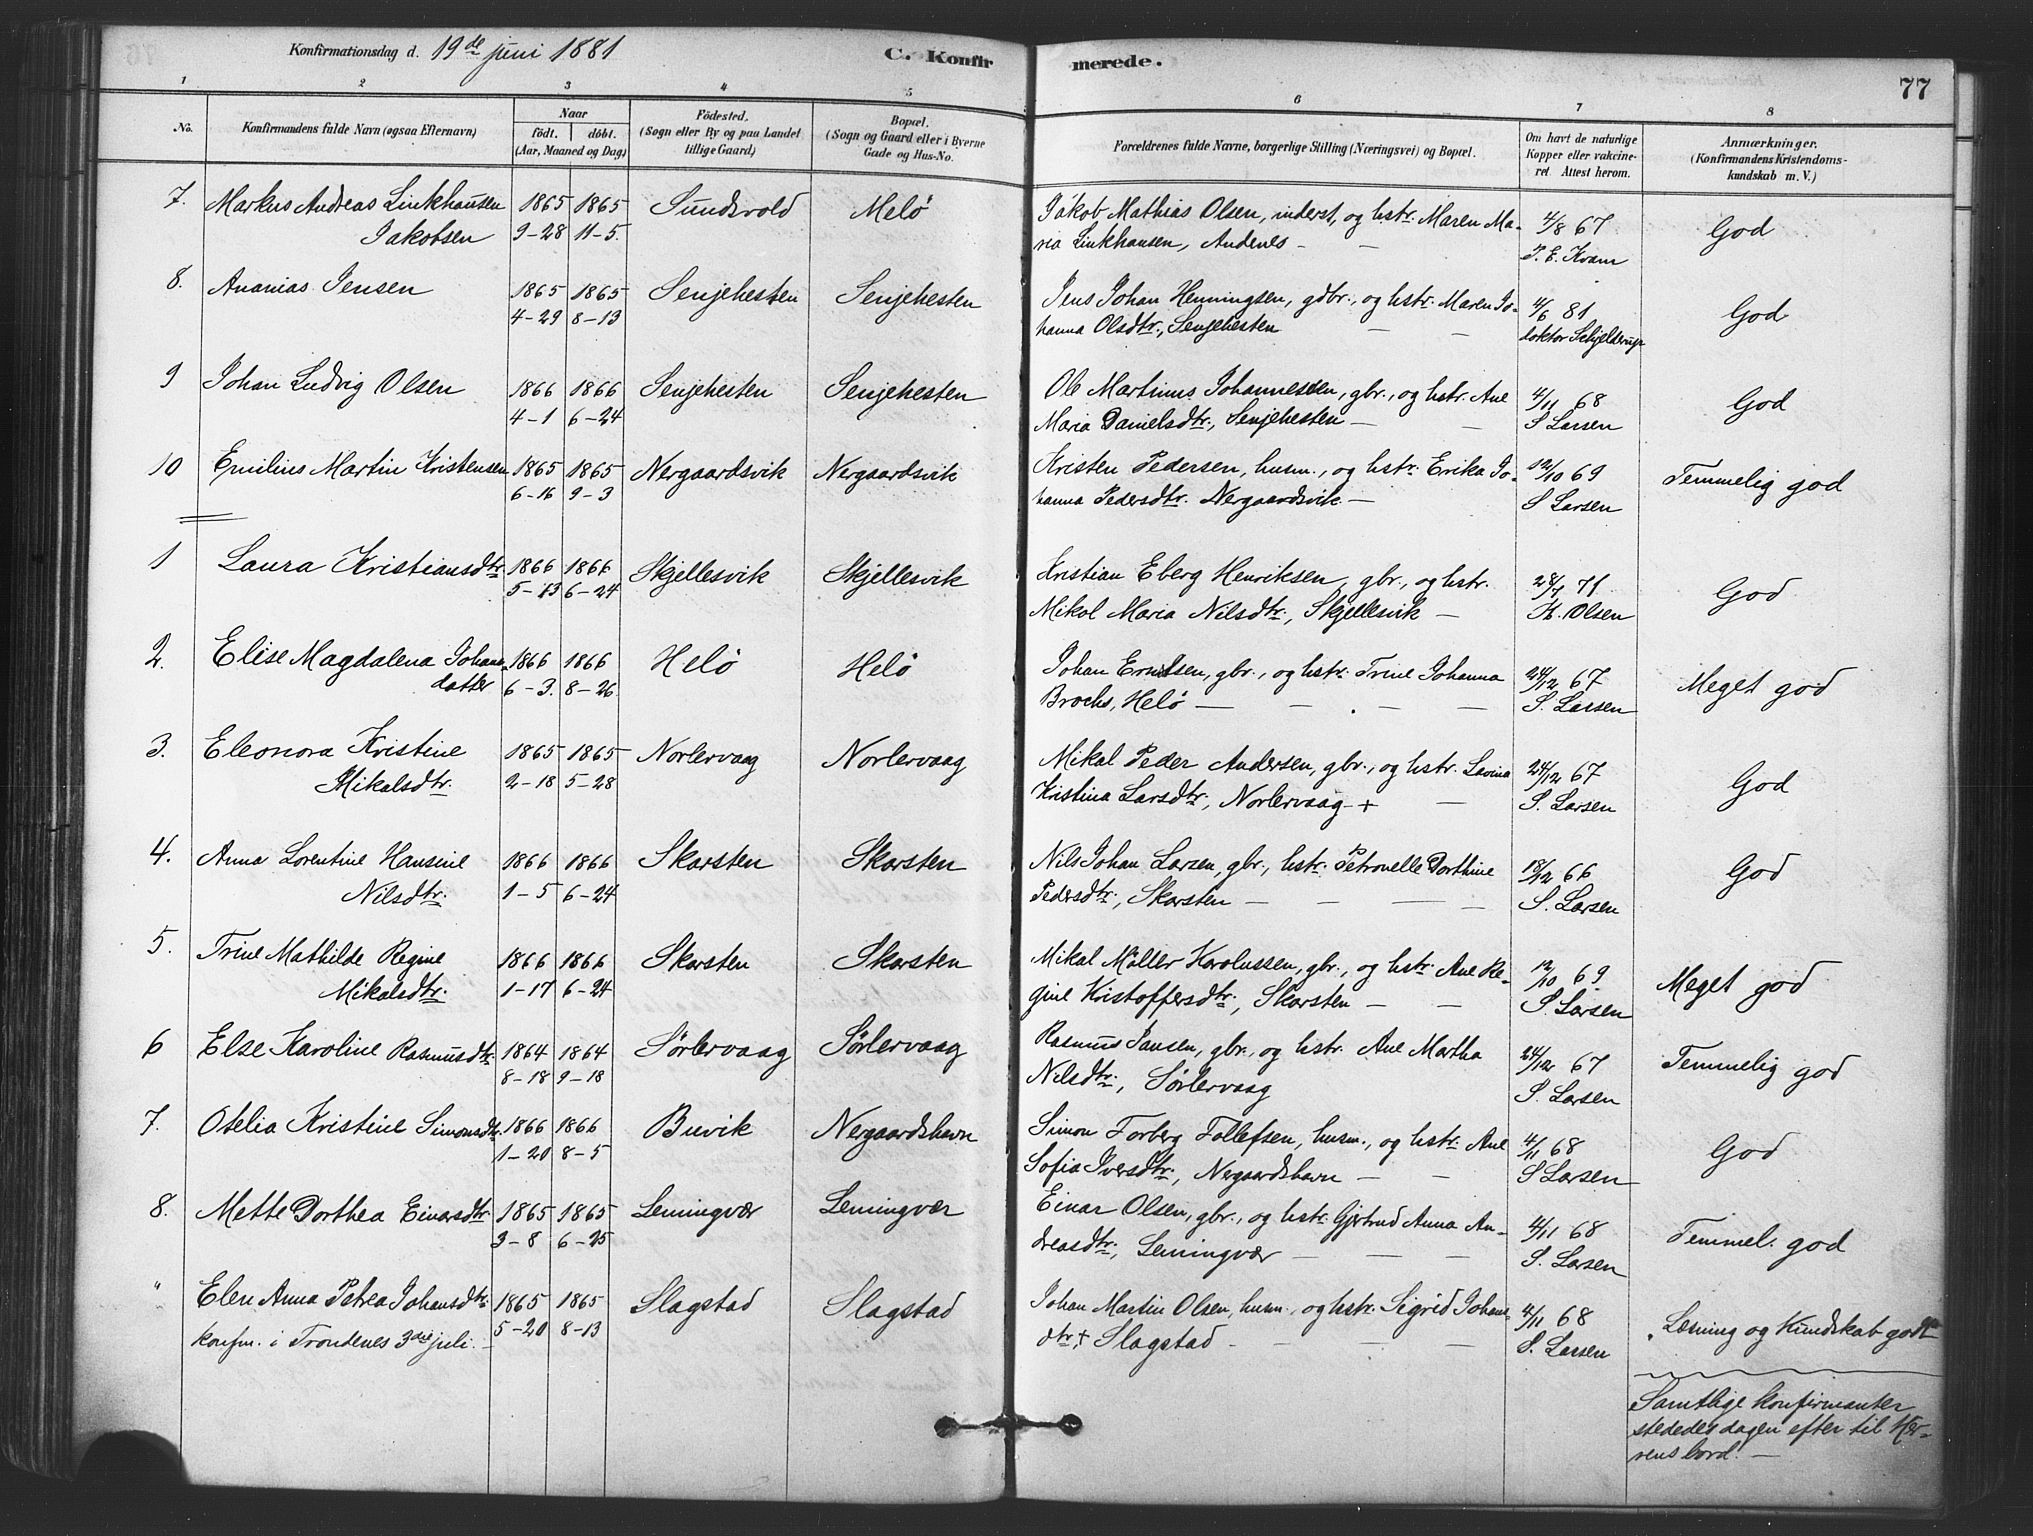 Konfirmationsdag d. 19de juni 1881
C. Konfir merede.
77
1 2 3 4 5 6 7 8
No.
Konfirmandens fulde Navn (ogsaa Efternavn)
Naar
födt. döbt.
(Aar, Maaned og Dag)
Födested.
(Sogn eller By og paa Landet
tillige Gaard.)
Bopæl.
(Sogn og Gaard eller i Byerne
Gade og Hus-No.
Forældrenes fulde Navne, borgerlige Stilling (Næringsvei) og Bopæl.
Om havt de naturlige
Kopper eller vakcine-
ret. Attest herom.
Anmærkninger.
(Konfirmandens Kristendoms-
kundskab m. V.)
7. Markus Andreas Linkhausen 1865 1865 Sundsvold Melö Jakob Mathias Olsen, inderst, og hstr. Maren Ma- 4/8 67 God
Jakobsen 9-28 11-5. ria Linkhausen, Andenes — — P. E. Kvam
8. Ananias Jensen 1865 1865 Senjehesten Senjehesten Jens Johan Henningsen, gdbr., og hstr. Maren Jo- 4/6 81 God
4-29 8-13 hanna Olsdtr., Senjehesten — — doktor Schjelderup
9 Johan Ludvig Olsen 1866 1866 Senjehesten Senjehesten Ole Martinus Johannessen, gbr., og hstr. Ane 4/11 68 God
4-1 6-24 Maria Danielsdtr., Senjehesten — — S Larsen
10 Emilius Martin Kristensen 1865 1865 Nergaardsvik Nergaardsvik Kristen Pedersen, husm., og hstr. Erika Jo- 12/10 69 Temmelig god
6-16 9-3 hanna Pedersdtr. Nergaardsvik — S Larsen
1 Laura Kristiansdtr. 1866 1866 Skjellesvik Skjellesvik Kristian Eberg Henriksen, gbr., og hstr. 28/7 71 God
5-13 6-24 Mikol Maria Nilsdtr., Skjellesvik — H. Olsen
2. Elise Magdalena Johans- 1866 1866 Helö Helö Johan Erntsen, gbr., og hstr. Trine Johanna 24/12 67 Meget god
datter 6-3. 8-26. Brochs, Helö — — — — S. Larsen
3. Eleonora Kristine 1865 1865 Norlervaag Norlervaag Mikal Peder Andersen, gbr., og hstr. Lavina 24/12 67 God
Mikalsdtr. 2-18 5-28 Kristina Larsdtr., Norlervaag + — S. Larsen
4. Anna Lorentine Hansine 1866 1866 Skorsten Skorsten Nils Johan Larsen, gbr., hstr. Petronelle Dorthine 18/12 66 God
Nilsdtr. 1-5 6-24 Pedersdtr., Skorsten — — — — S. Larsen
5. Trine Mathilde Regine 1866 1866 Skorsten Skorsten Mikal Möller Karolussen, gbr., og hstr. Ane Re- 12/10 69. Meget god
Mikalsdtr. 1-17 6-24 gine Kristoffersdtr., Skorsten — — S. Larsen
6 Else Karoline Rasmusdtr. 1864 1864 Sørlervaag Sørlervaag Rasmus Jansen, gbr., og hstr. Ane Martha 24/12 67 Temmelig god
8-18 9-18 Nilsdtr., Sørlervaag S. Larsen
7. Otelia Kristine Simonsdtr. 1866 1866 Buvik Nergaardshavn Simon Forberg Tollefsen, husm., og hstr. Ane 4/11 68 God
1-20 8-5 Sofia Iversdtr., Nergaardshavn — — S Larsen
8. Mette Dorthea Einarsdtr. 1865 1865 Lemingvær Lemingvær Einar Olsen, gbr., og hstr. Gjertrud Anna An- 4/11 68 Temmel. god
3-8 6-25 dreasdtr., Lemingvær — — — S. Larsen
" Elen Anna Petrea Johansdtr. 1865 1865 Slagstad Slagstad Johan Martin Olsen, husm., og hstr. Sigrid Johans- 4/11 68 Læsning og Kundskab godt
konfm. i Trondenes 3die juli. — 5-20 8-13 dtr. +, Slagstad — — — S. Larsen
Samtlige konfirmanter
stededes dagen efter til Her-
rens bord. —